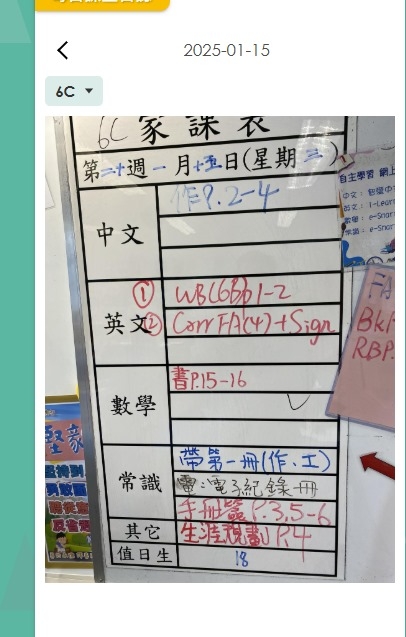 2025-01-15
6C
6C 家課表
第二十週一月十五日(星期三)
中文
作P.2-4
英文
① WB(6B)p1-2
② Corr FA(4)+Sign
數學
書P.15-16
常識
帶第一冊(作、工)
電:電子紀錄冊
手冊篇P.3,5-6
其它
生涯規劃P.4
值日生
18
自主學習 網上
FA
Bk1
RBP.